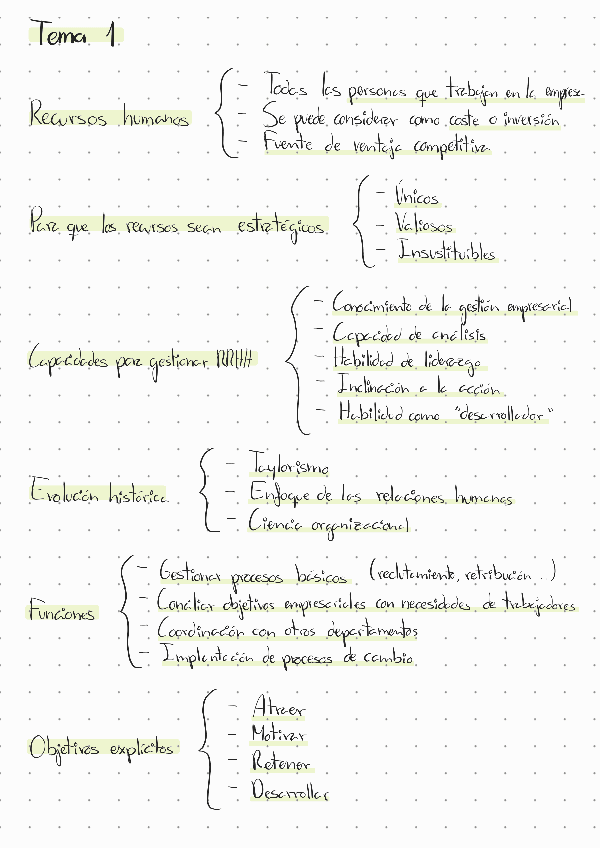 Tema 1
Recursos humanos
- Todas las personas que trabajan en la empresa
- Se puede considerar como coste o inversión
- Fuente de ventaja competitiva
Para que los recursos sean estratégicos
- Únicos
- Valiosos
- Insustituibles
Capacidades para gestionar RRHH
- Conocimiento de la gestión empresarial
- Capacidad de análisis
- Habilidad de liderazgo
- Inclinación a la acción
- Habilidad como "desarrollador"
Evolución histórica
- Taylorismo
- Enfoque de las relaciones humanas
- Ciencia organizacional
Funciones
- Gestionar procesos básicos (reclutamiento, retribución..)
- Conciliar objetivos empresariales con necesidades de trabajadores
- Coordinación con otros departamentos
- Implantación de procesos de cambio
Objetivos explícitos
- Atraer
- Motivar
- Retener
- Desarrollar